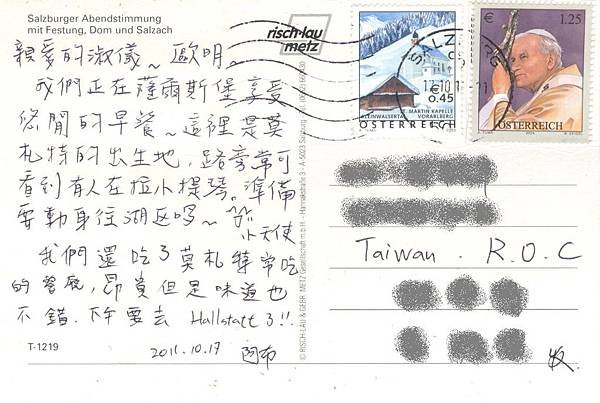 Salzburger Abendstimmung
mit Festung, Dom und Salzach
risch-lau
metz
親愛的淑儀~歐明。
我們正在薩爾斯堡享受
悠閒的早餐~這裡是莫
札特的出生地,路旁常可
看到有人在拉小提琴。準備
要動身往湖区囉~
小天使
我們還吃了莫札特常吃
的餐廳,昂貴但是味道也
不錯.下午要去 Hallstatt 3!!
T-1219
2011.10.17 阿布
€ 0.45
ÖSTERREICH
€ 1.25
ÖSTERREICH
SALZ
17.10.1
Taiwan . R.O.C
收